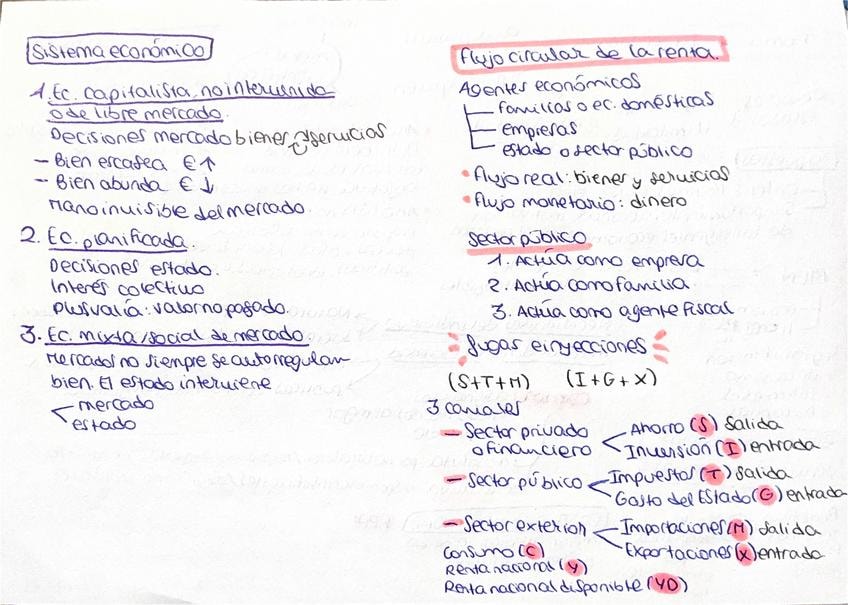 Sistema económico
1. Ec. capitalista, no intervenida
o de libre mercado.
Decisiones mercado bienes y servicios
- Bien escasea € ↑
- Bien abunda € ↓
Mano invisible del mercado.
2. Ec. planificada.
Decisiones estado.
Interés colectivo
Plusvalía: valor no pagado.
3. Ec. mixta/social de mercado.
Mercados no siempre se autorregulan
bien. El estado interviene
mercado
estado
Flujo circular de la renta.
Agentes económicos
familias o ec. domésticas
empresas
estado o sector público
• Flujo real: bienes y servicios
• Flujo monetario: dinero
Sector público
1. Actúa como empresa
2. Actúa como familia
3. Actúa como agente fiscal
fugas e inyecciones
(S+T+M) (I+G+X)
3 canales
- Sector privado
o financiero
Ahorro (S) salida
Inversión (I) entrada
- Sector público
Impuestos (T) salida
Gasto del Estado (G) entrada
- Sector exterior
Importaciones (M) salida
Exportaciones (X) entrada
Consumo (C)
Renta nacional (Y)
Renta nacional disponible (YD)